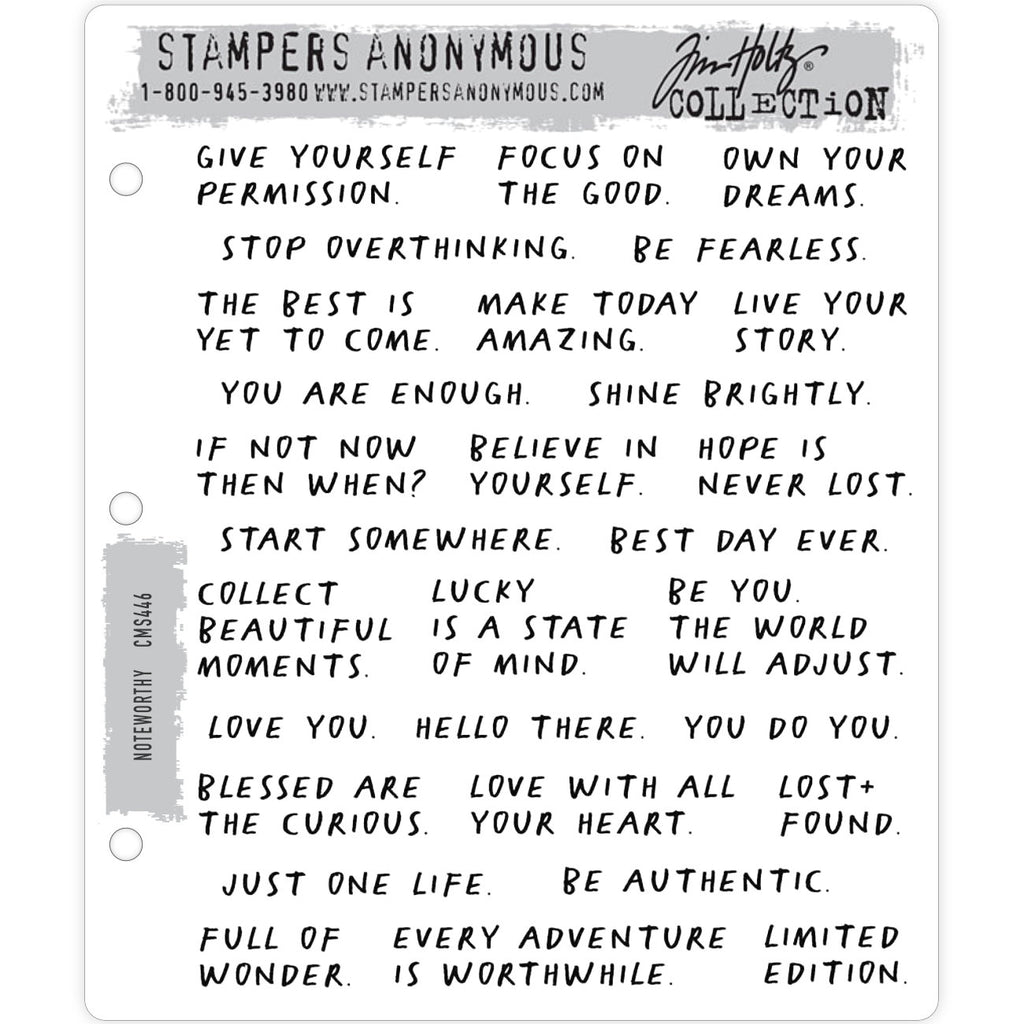 STAMPERS ANONYMOUS
1-800-945-3980 WWW.STAMPERSANONYMOUS.COM
Tim Holtz®
COLLECTION
GIVE YOURSELF
PERMISSION.
FOCUS ON
THE GOOD.
OWN YOUR
DREAMS.
STOP OVERTHINKING.
BE FEARLESS.
THE BEST IS
YET TO COME.
MAKE TODAY
AMAZING.
LIVE YOUR
STORY.
YOU ARE ENOUGH.
SHINE BRIGHTLY.
IF NOT NOW
THEN WHEN?
BELIEVE IN
YOURSELF.
HOPE IS
NEVER LOST.
START SOMEWHERE.
BEST DAY EVER.
COLLECT
BEAUTIFUL
MOMENTS.
LUCKY
IS A STATE
OF MIND.
BE YOU.
THE WORLD
WILL ADJUST.
LOVE YOU.
HELLO THERE.
YOU DO YOU.
BLESSED ARE
THE CURIOUS.
LOVE WITH ALL
YOUR HEART.
LOST+
FOUND.
JUST ONE LIFE.
BE AUTHENTIC.
FULL OF
WONDER.
EVERY ADVENTURE
IS WORTHWHILE.
LIMITED
EDITION.
NOTEWORTHY CMS446